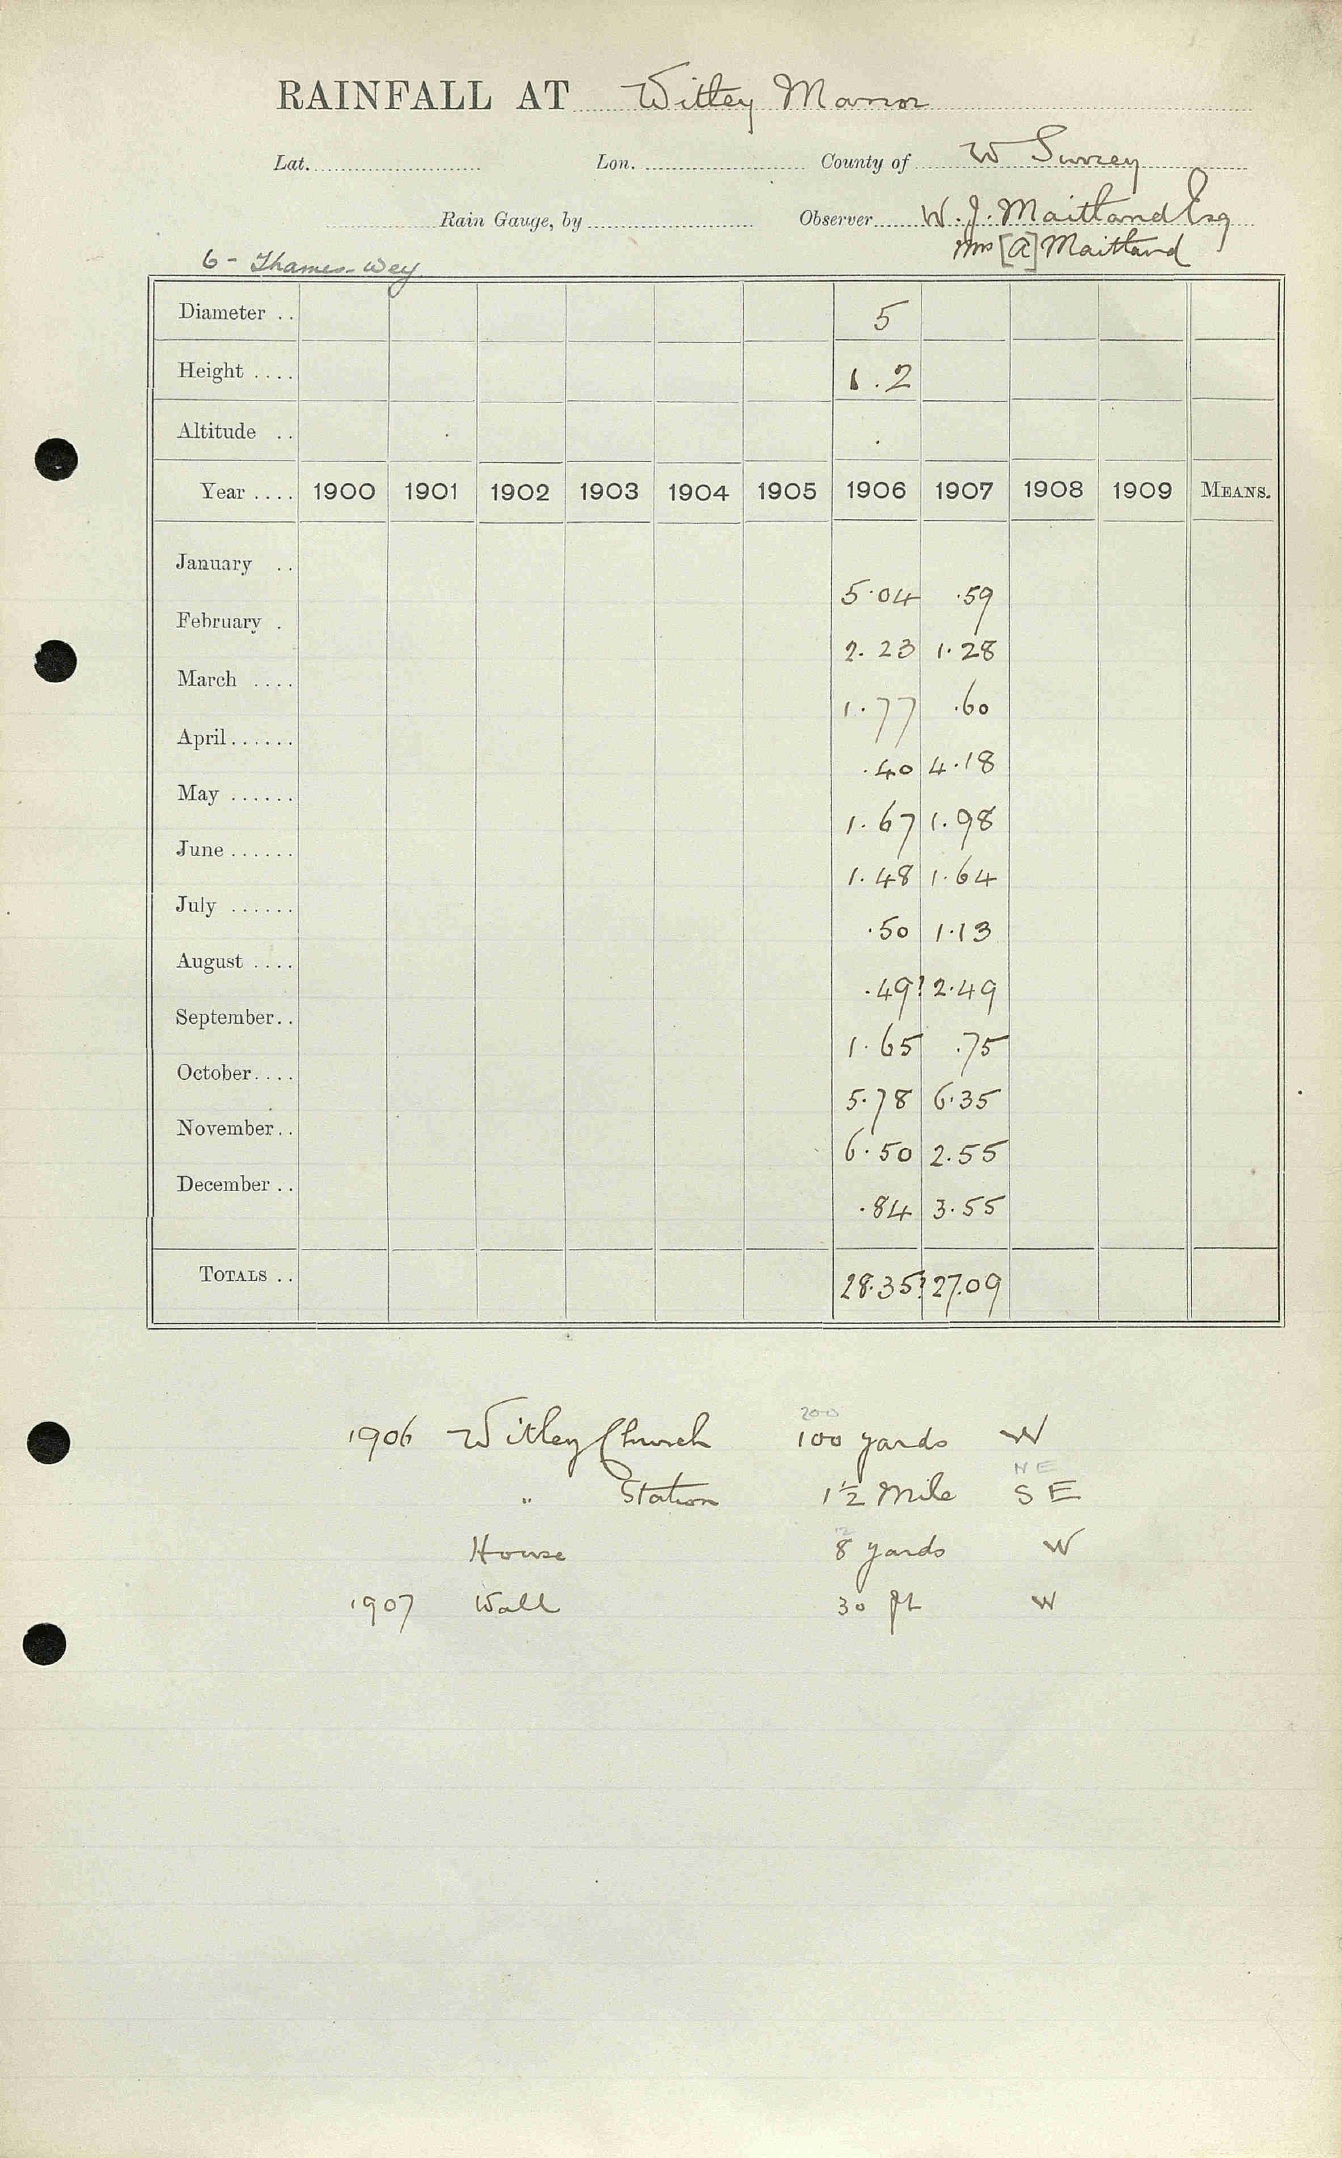 RAINFALL AT Witley Manor
Lat. Lon. County of W Surrey
Rain Gauge, by Observer W. J. Maitland Esq
Mrs [A] Maitland
6 - Thames - Wey
Diameter .. 5
Height .... 1.2
Altitude ..
Year .... 1900 1901 1902 1903 1904 1905 1906 1907 1908 1909 MEANS.
January .. 5.04 .59
February . 2.23 1.28
March .... 1.77 .60
April ...... .40 4.18
May ...... 1.67 1.98
June ...... 1.48 1.64
July ...... .50 1.13
August .... .49? 2.49
September.. 1.65 .75
October.... 5.78 6.35
November.. 6.50 2.55
December .. .84 3.55
TOTALS .. 28.35? 27.09
200
1906 Witley Church 100 yards W
NE
" Station 1½ Mile SE
12
House 8 yards W
1907 Wall 30 ft W